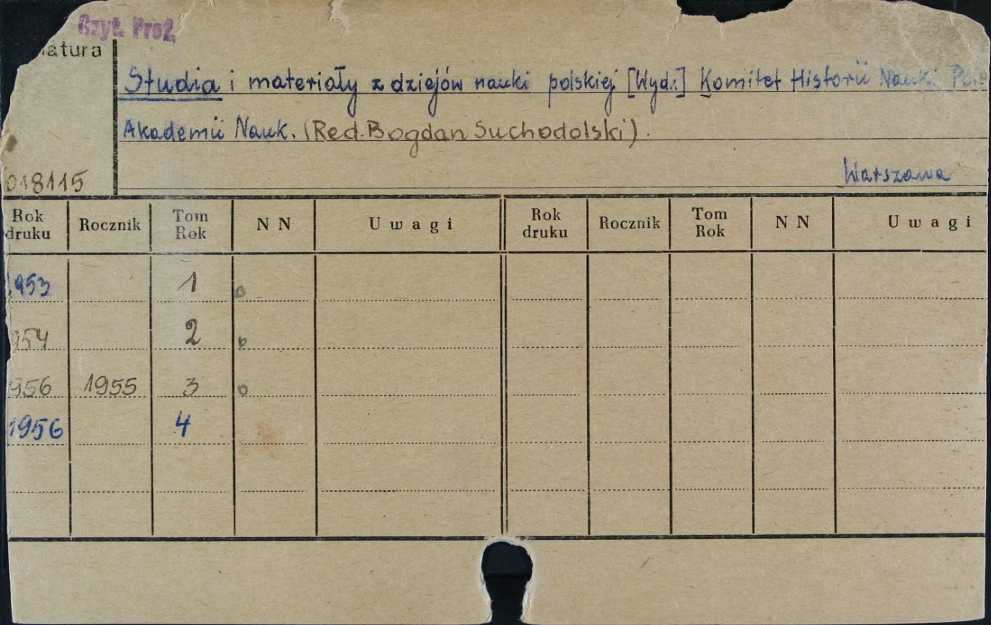 Czyt. Prof.
atura
Studia i materiały z dziejów nauki polskiej [Wyd.:] Komitet Historii Nauki. Pol
Akademii Nauk. (Red. Bogdan Suchodolski).
018115 Warszawa
Rok druku Rocznik Tom Rok NN Uwagi Rok druku Rocznik Tom Rok NN Uwagi
1953 1
954 2
956 1955 3
1956 4